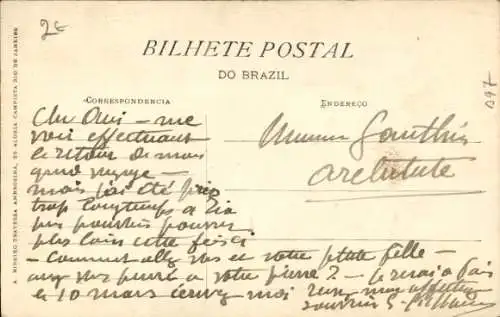 2€
BILHETE POSTAL
DO BRAZIL
CORRESPONDENCIA
ENDEREÇO
Cher Ami – me
voici effectuant
le retour de mon
grand voyage –
mais j'ai été pris
trop longtemps à Rio
pas pour pouvoir
plus loin cette fois ci
– Comment allez vous et votre petite fille –
avez vous pensé à votre pierre? – Je serai à Paris
le 10 mars écrivez moi
souvenir
Monsieur Gauthier
Architecte
097
A. RIBEIRO TRAVESSA AMBROSINA, 23 ALDEIA CAMPISTA RIO DE JANEIRO